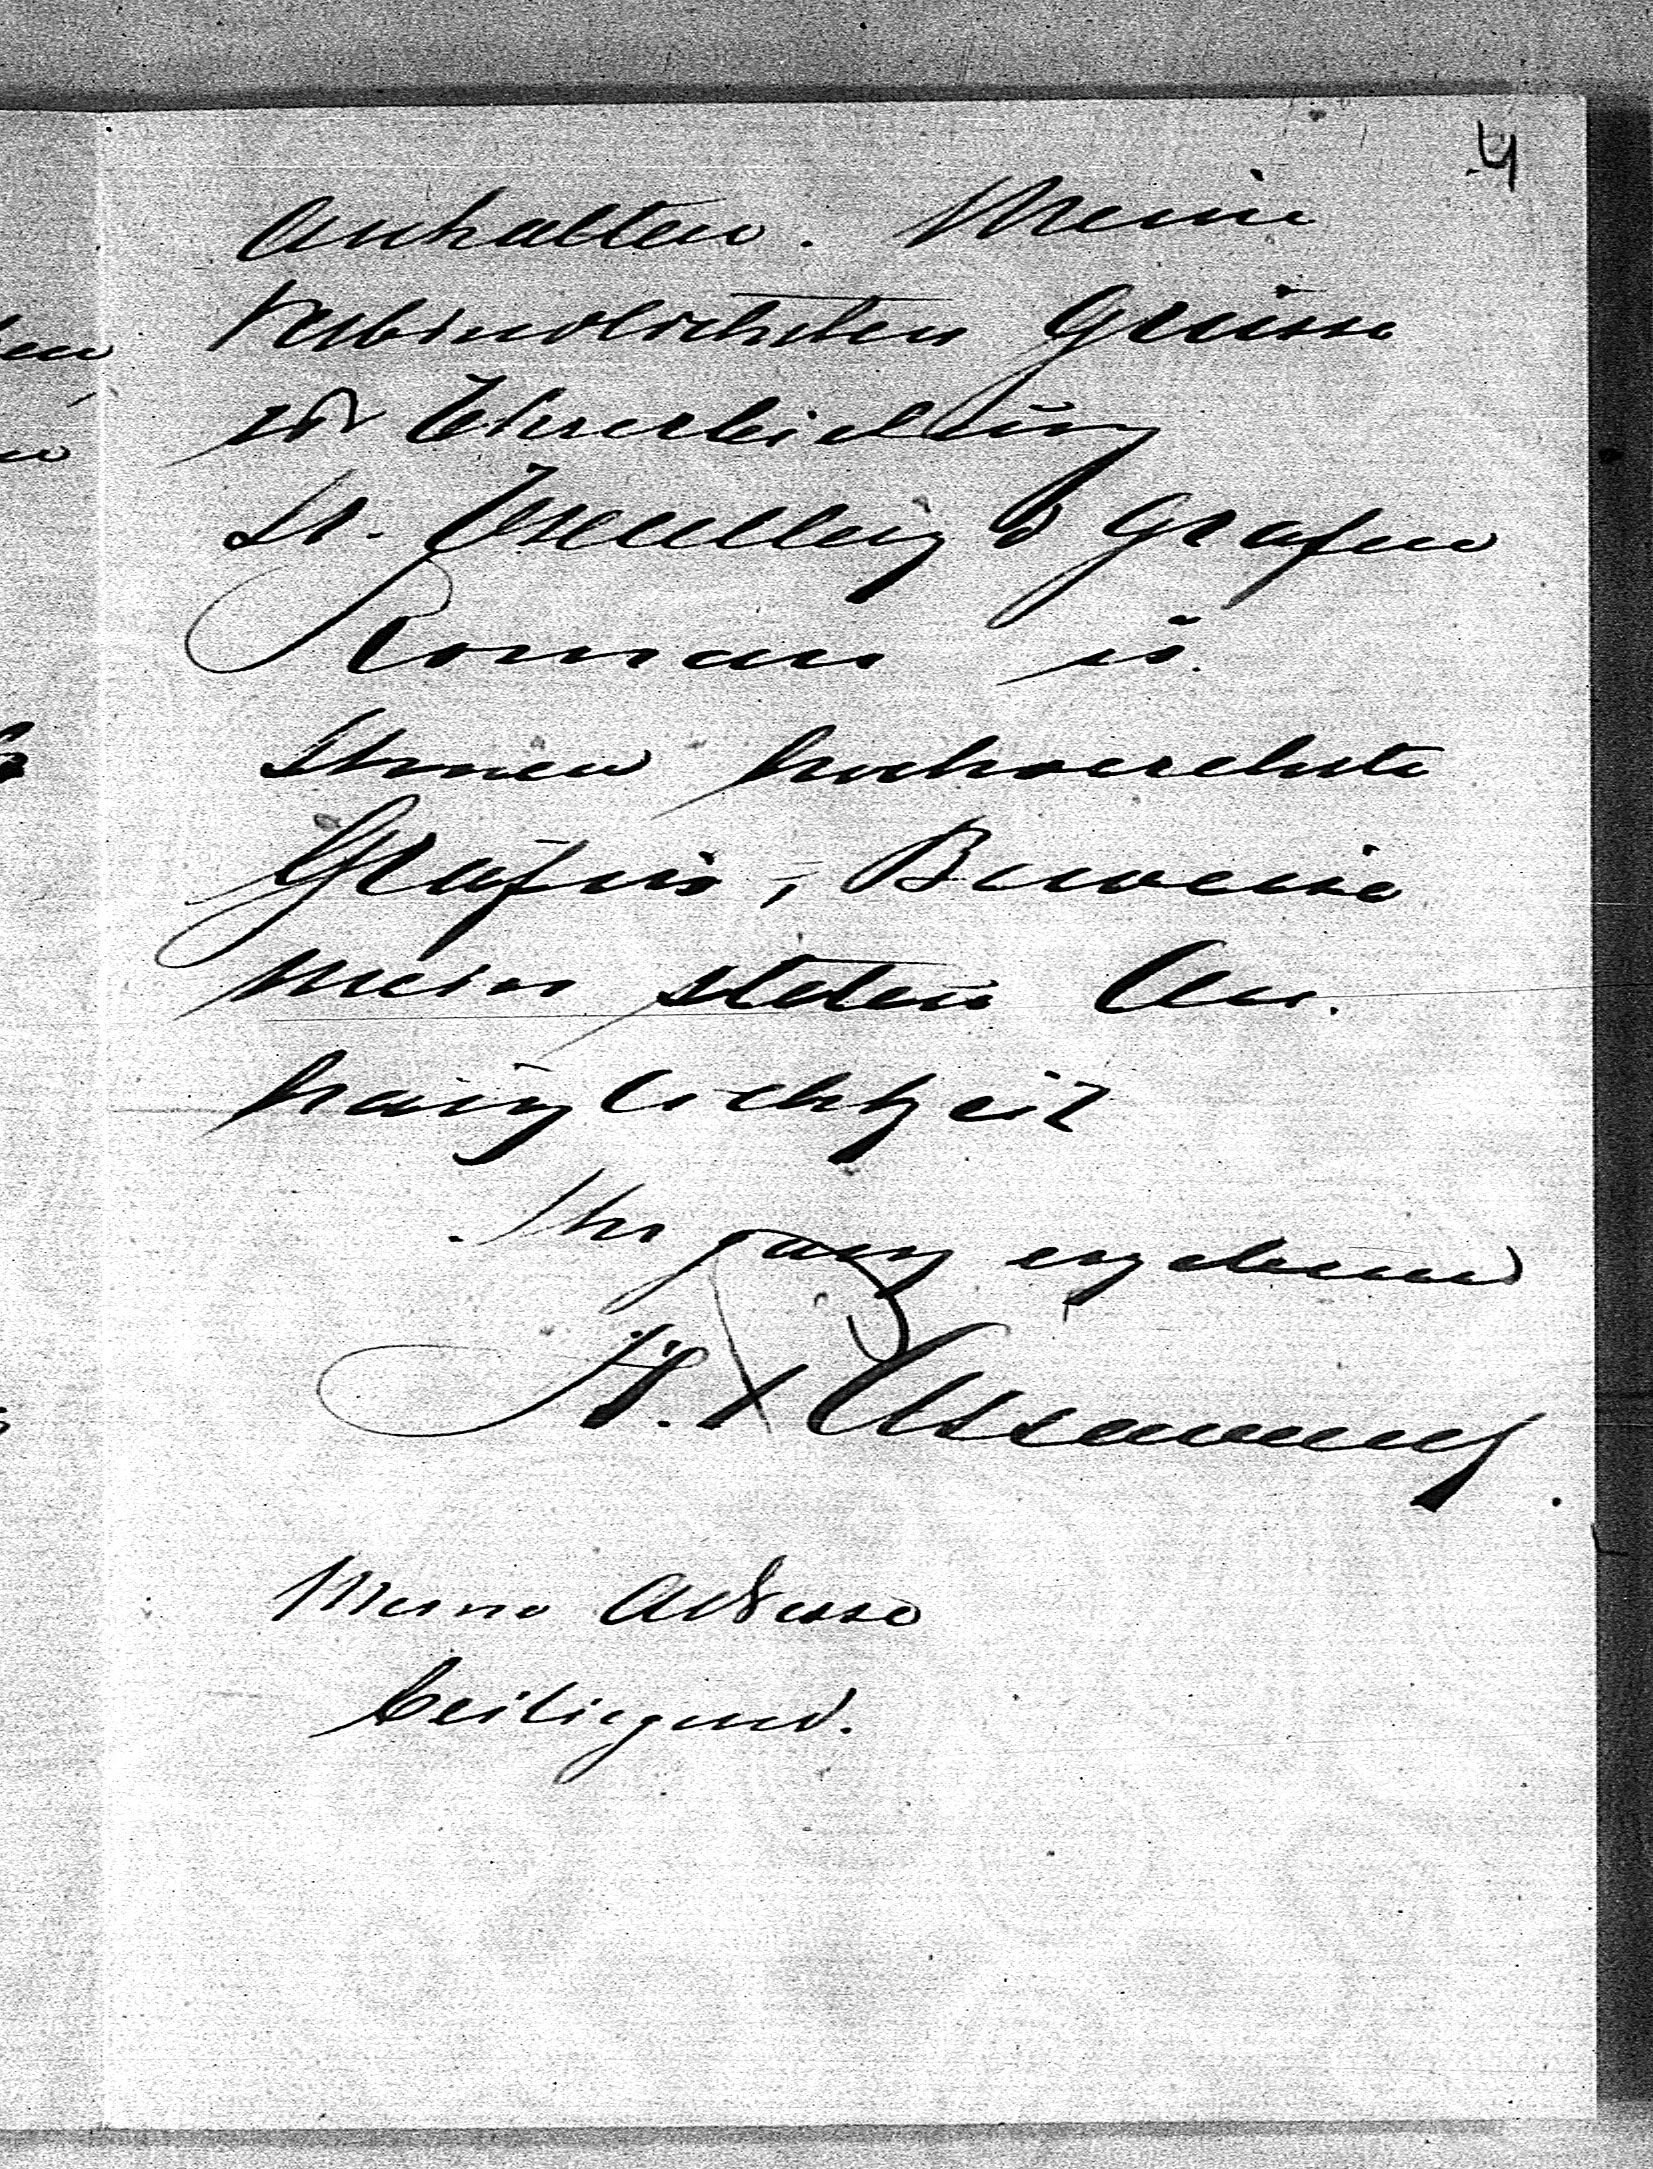 4
anhalten. Meine
verbindlichsten Grüsse
u Ehrerbietung
Sr. Excellenz d Grafen
Roman u.
Ihnen hochverehrte
Gräfin, Beweise
mein steten An-
hänglichkeit
Ihr ganz ergebener
Meine Adresse
beiliegend.